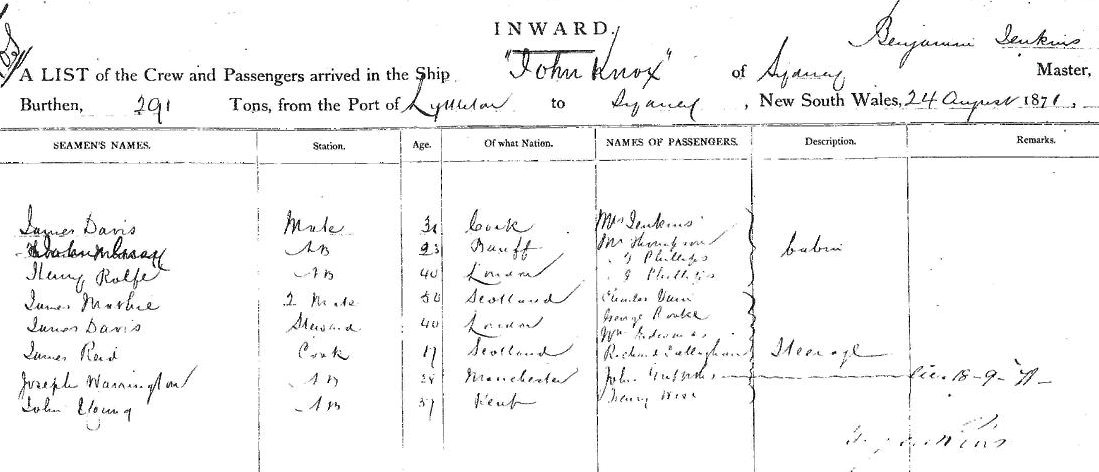 INWARD.
Benjamin Jenkins
A LIST of the Crew and Passengers arrived in the Ship "John Knox" of Sydney Master,
Burthen, 291 Tons, from the Port of Lyttleton to Sydney, New South Wales, 24 August 1871,
SEAMEN'S NAMES. Station. Age. Of what Nation. NAMES OF PASSENGERS. Description. Remarks.
James Davis Mate Cork Mrs Jenkins
AB 23 Banff Mr Thompson Cabin
Henry Rolfe AB 40 London Phillips
Phillips
James 2 Mate 50 Scotland Charles
James Davis Steward 40 London George
Wm
James Reid Cook 17 Scotland Richard Callaghan Steerage
Joseph Warrington AB 28 Manchester John 18-9-71
John Young AB 37 Kent Henry Wise
Jenkins